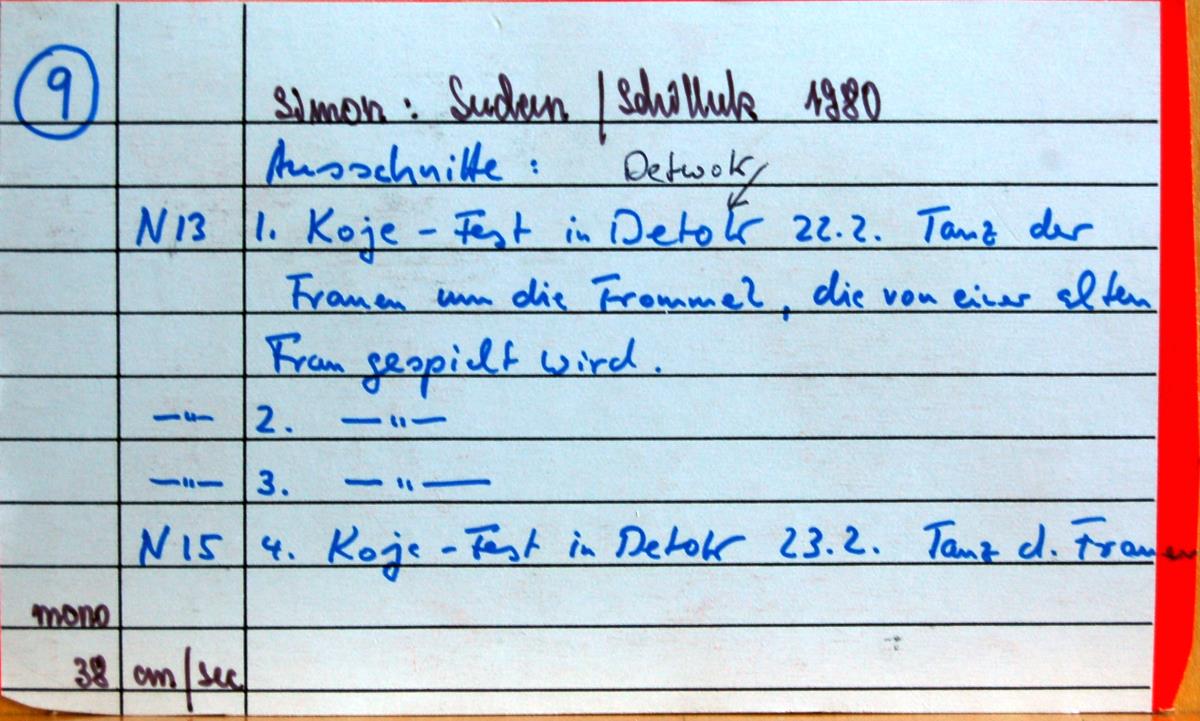 9
Simon: Sudan / Schilluk 1980
Ausschnitte: Detwok
N13 1. Koje-Fest in Detok 22.2. Tanz der
Frauen um die Trommel, die von einer alten
Frau gespielt wird.
—"— 2. —"—
—"— 3. —"—
N15 4. Koje-Fest in Detok 23.2. Tanz d. Frauen
mono
38 cm/sec